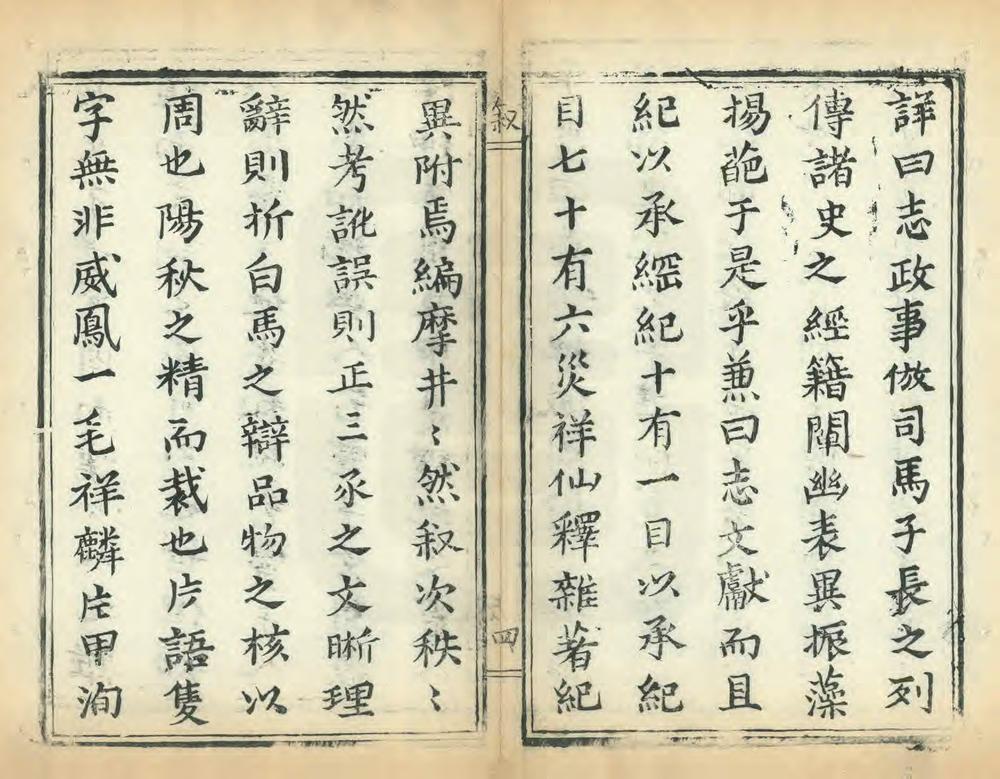 詳曰志政事倣司馬子長之列
傳諸史之經籍闡幽表異振藻
揚葩于是乎兼曰志文獻而且
紀以承綱紀十有一目以承紀
目七十有六災祥仙釋雜著紀
叙
四
異附焉編摩井〻然叙次秩〻
然考訛誤則正三豕之文晰理
辭則折白馬之辯品物之核以
周也陽秋之精而裁也片語隻
字無非威鳳一毛祥麟片甲洵